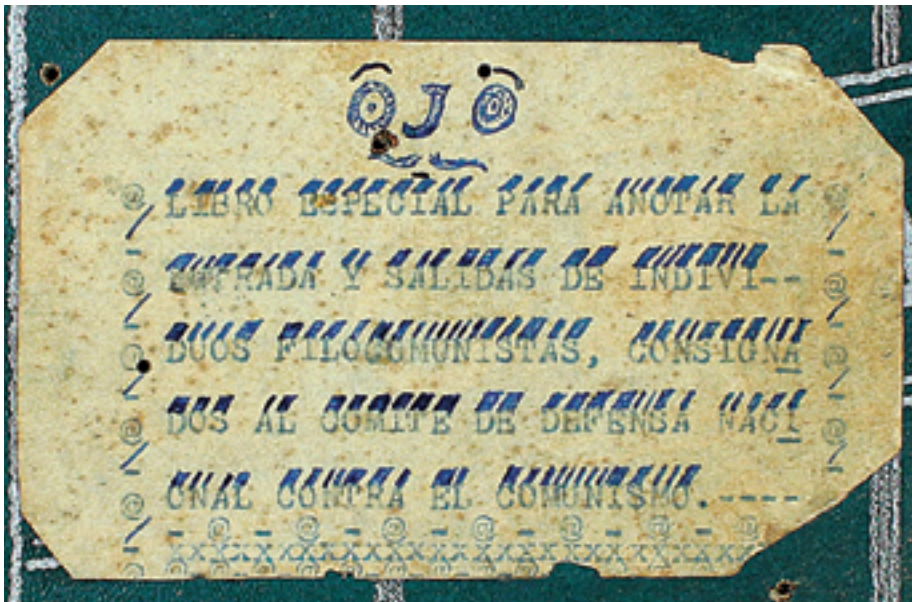 OJO
LIBRO ESPECIAL PARA ANOTAR LA
ENTRADA Y SALIDAS DE INDIVI--
DUOS FILOCOMUNISTAS, CONSIGNA
DOS AL COMITE DE DEFENSA NACI
ONAL CONTRA EL COMUNISMO.----